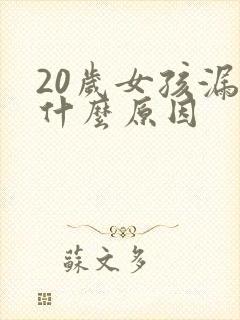 20歲女孩漏
什麼原因
蘇文多